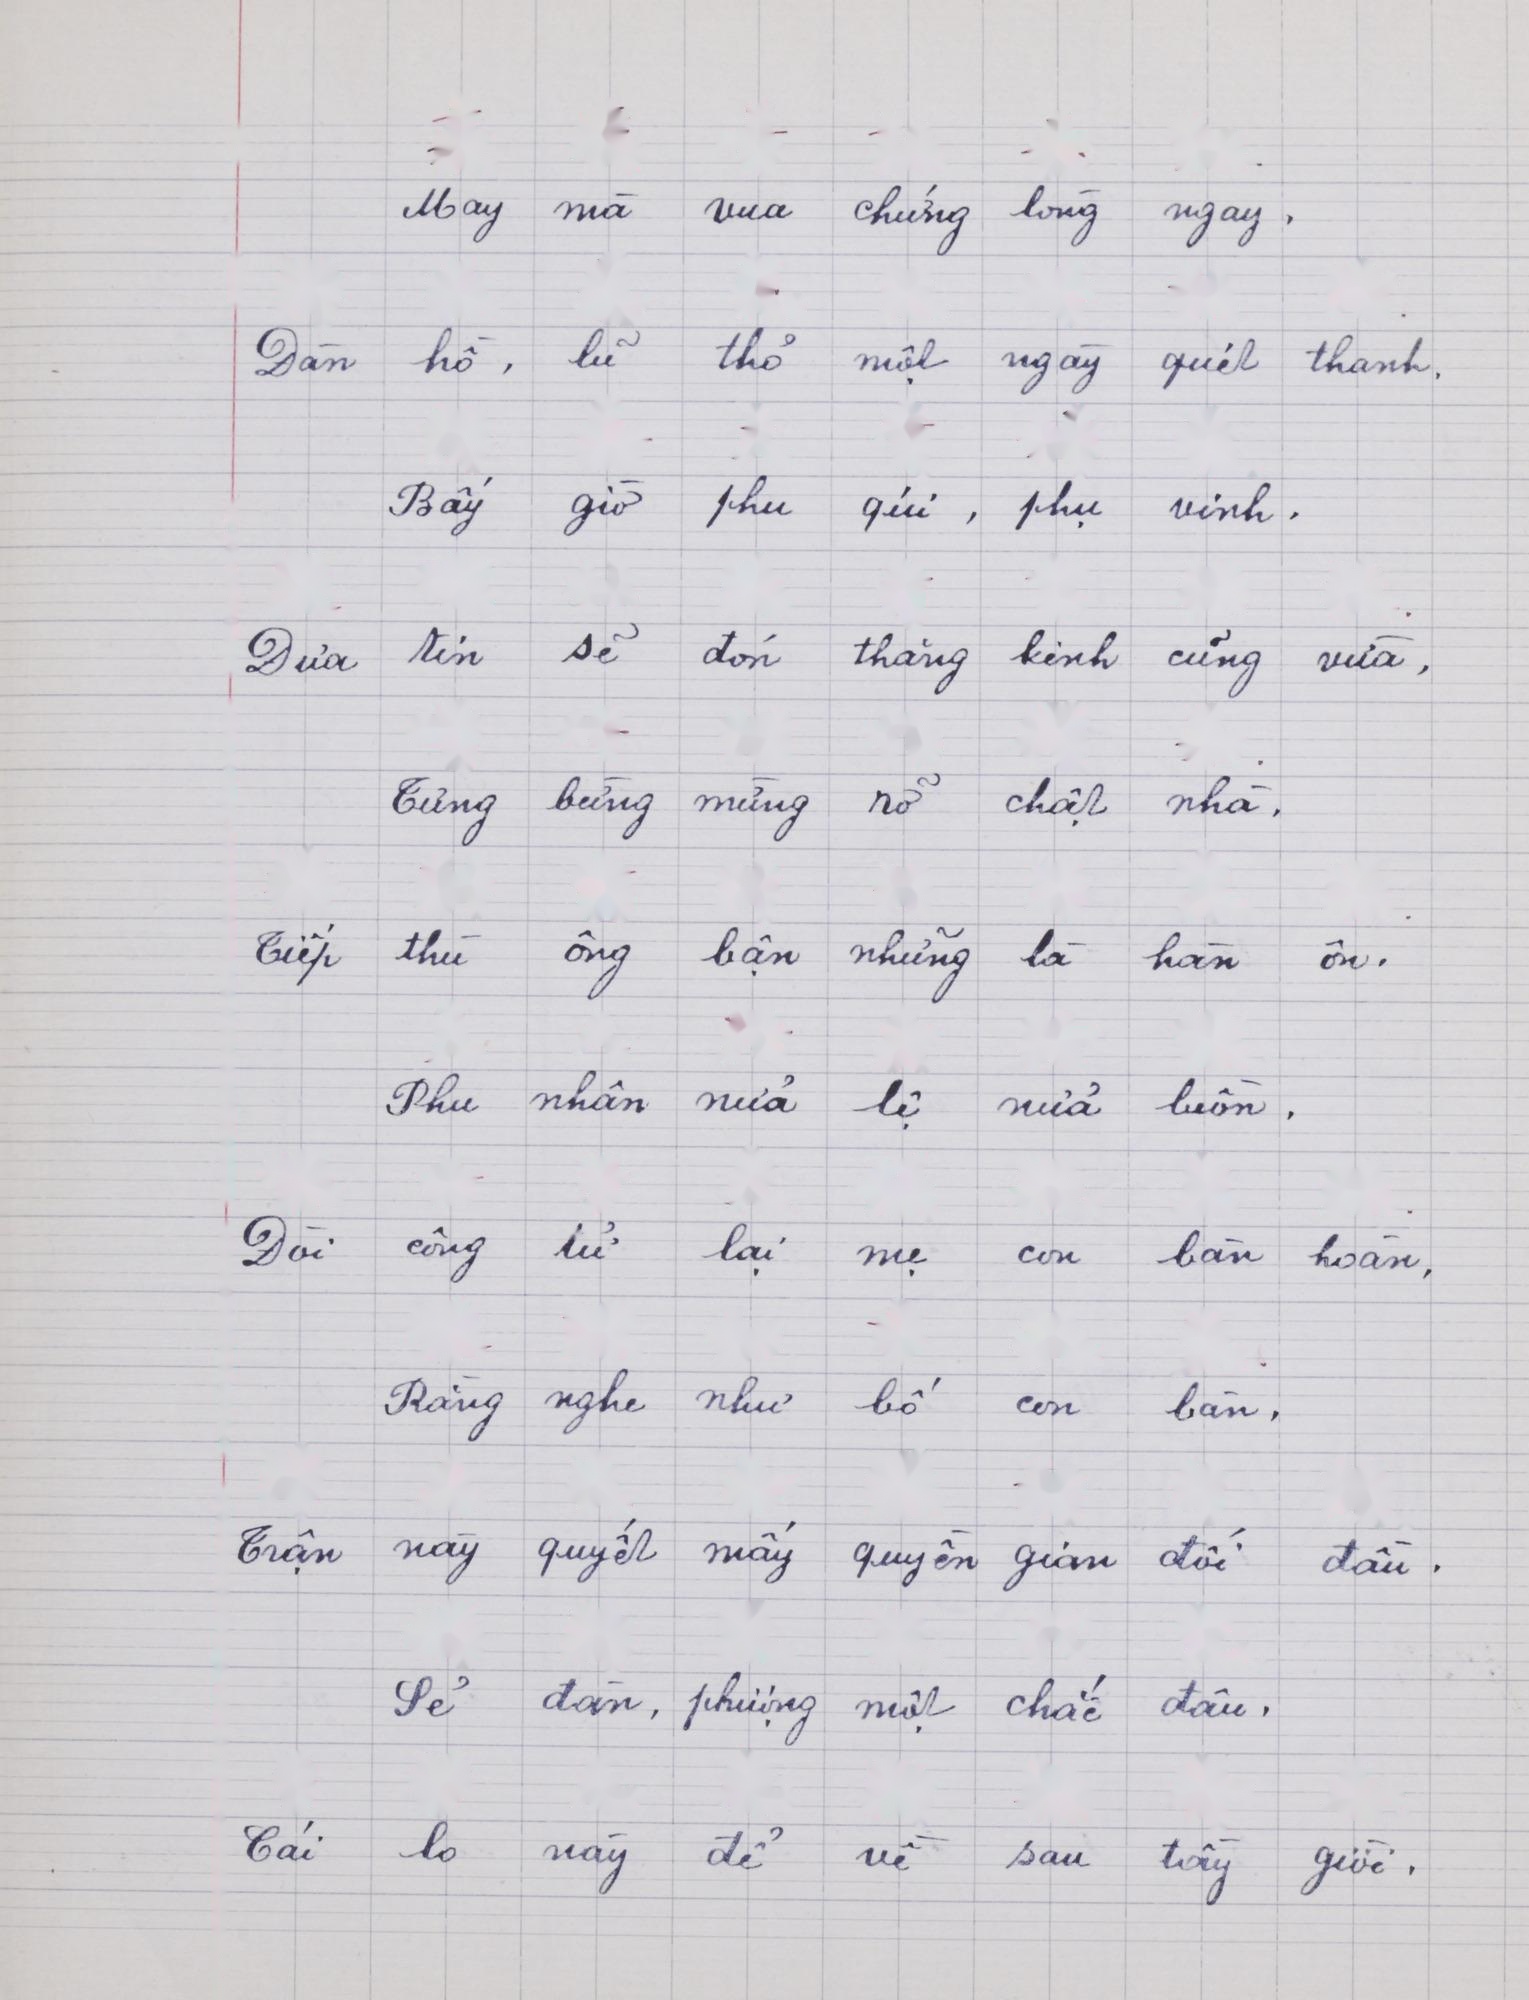 May mà vua chứng lòng ngay,
Dàn hồ, lũ thỏ một ngày quét thanh.
Bấy giờ phu qúi, phụ vinh.
Đưa tin sẽ đón thằng kinh cũng vừa,
Tưng bừng mừng rỡ chật nhà,
Tiếp thù ông bận những là hàn ôn.
Phu nhân nửa lệ nửa buồn,
Đòi công tử lại mẹ con bàn hoàn,
Rằng nghe như bố con bàn,
Trận này quyết mấy quyền gian đối đầu.
Sẻ đàn, phượng một chắc đâu,
Cái lo này để về sau tầy giời,